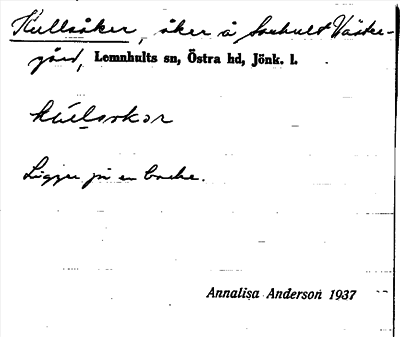 Kullsåker, åker å Sonhult Väster-
gård, Lemnhults sn, Östra hd, Jönk. l.
kúlsokər
Ligger på en backe.
Annalisa Anderson 1937